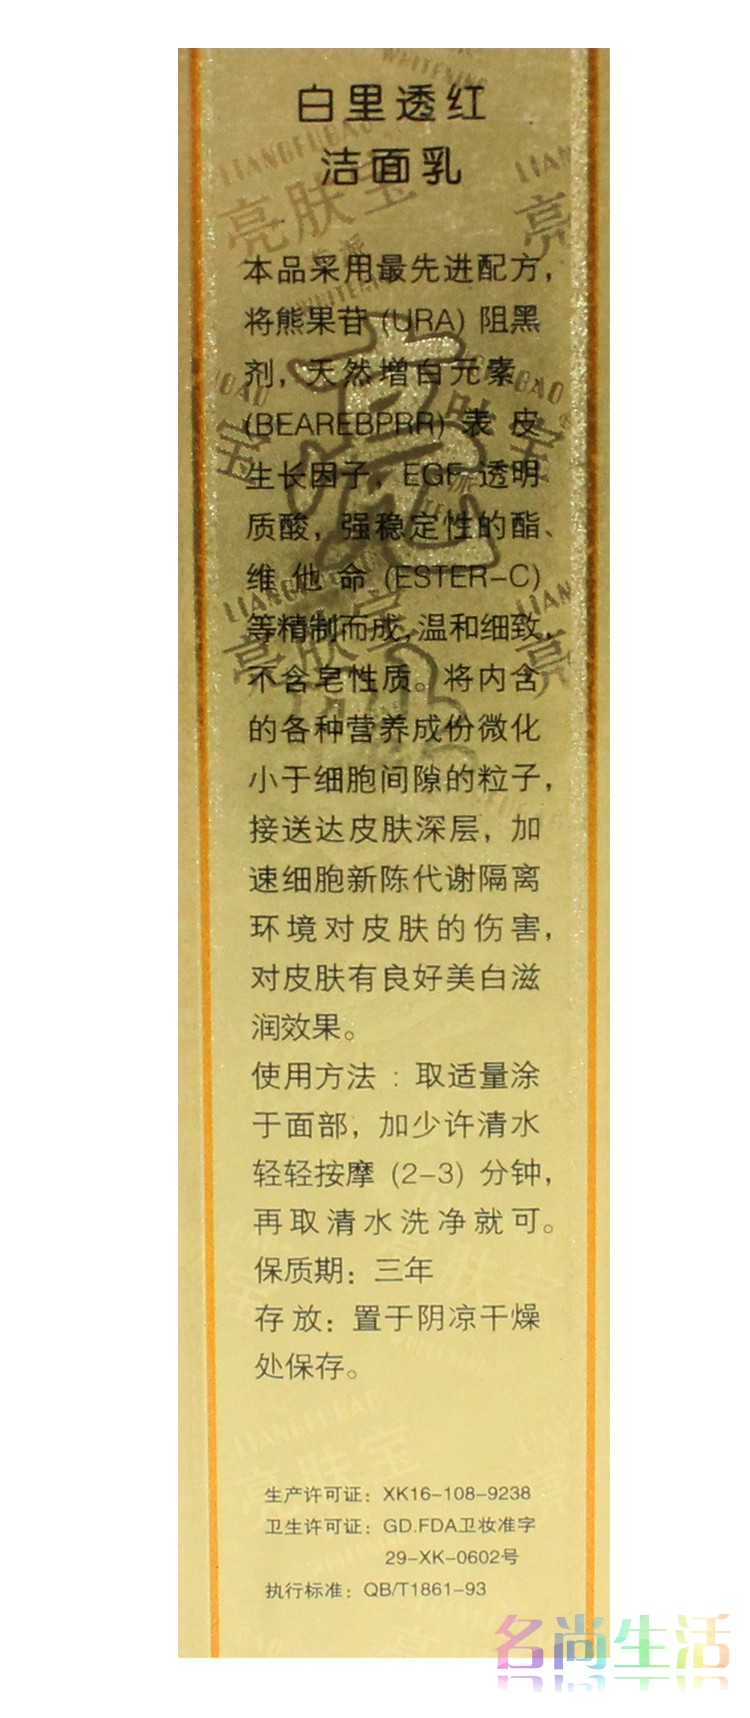 白里透红
洁面乳
本品采用最先进配方，
将熊果苷(URA)阻黑
剂，天然增白元素
(BEAREBPRR)表皮
生长因子，EGF透明
质酸，强稳定性的酯、
维他命(ESTER-C)
等精制而成,温和细致，
不含皂性质。将内含
的各种营养成份微化
小于细胞间隙的粒子，
接送达皮肤深层，加
速细胞新陈代谢隔离
环境对皮肤的伤害，
对皮肤有良好美白滋
润效果。
使用方法：取适量涂
于面部，加少许清水
轻轻按摩(2-3)分钟，
再取清水洗净就可。
保质期：三年
存放：置于阴凉干燥
处保存。
生产许可证：XK16-108-9238
卫生许可证：GD.FDA卫妆准字
29-XK-0602号
执行标准：QB/T1861-93
名尚生活
LIANGFUBAO
亮肤宝
WHITENING